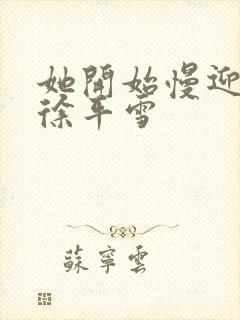 她開始慢迎
徐平雪
蘇寧雲